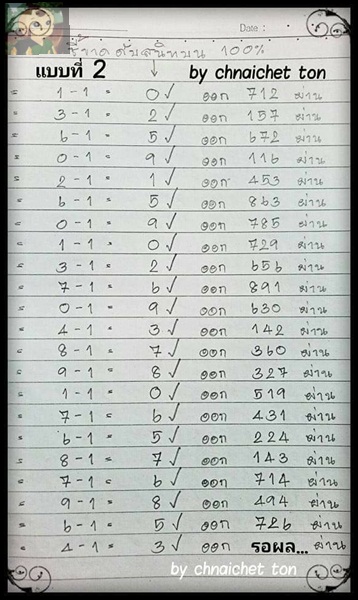 Date :
ชี้ขาดดับสนิทบน 100%
แบบที่ 2 ↓ by chnaichet ton
= 1-1 = 0✓ ออก 712 ผ่าน
= 3-1 = 2✓ ออก 157 ผ่าน
= 6-1 = 5✓ ออก 672 ผ่าน
= 0-1 = 9✓ ออก 116 ผ่าน
= 2-1 = 1✓ ออก 453 ผ่าน
= 6-1 = 5✓ ออก 863 ผ่าน
= 0-1 = 9✓ ออก 785 ผ่าน
= 1-1 = 0✓ ออก 729 ผ่าน
= 3-1 = 2✓ ออก 656 ผ่าน
= 7-1 = 6✓ ออก 891 ผ่าน
= 0-1 = 9✓ ออก 630 ผ่าน
= 4-1 = 3✓ ออก 142 ผ่าน
= 8-1 = 7✓ ออก 360 ผ่าน
= 9-1 = 8✓ ออก 327 ผ่าน
= 1-1 = 0✓ ออก 519 ผ่าน
= 7-1 = 6✓ ออก 431 ผ่าน
= 6-1 = 5✓ ออก 224 ผ่าน
= 8-1 = 7✓ ออก 143 ผ่าน
= 7-1 = 6✓ ออก 714 ผ่าน
= 9-1 = 8✓ ออก 494 ผ่าน
= 6-1 = 5✓ ออก 726 ผ่าน
= 4-1 = 3✓ ออก รอผล... ผ่าน
by chnaichet ton